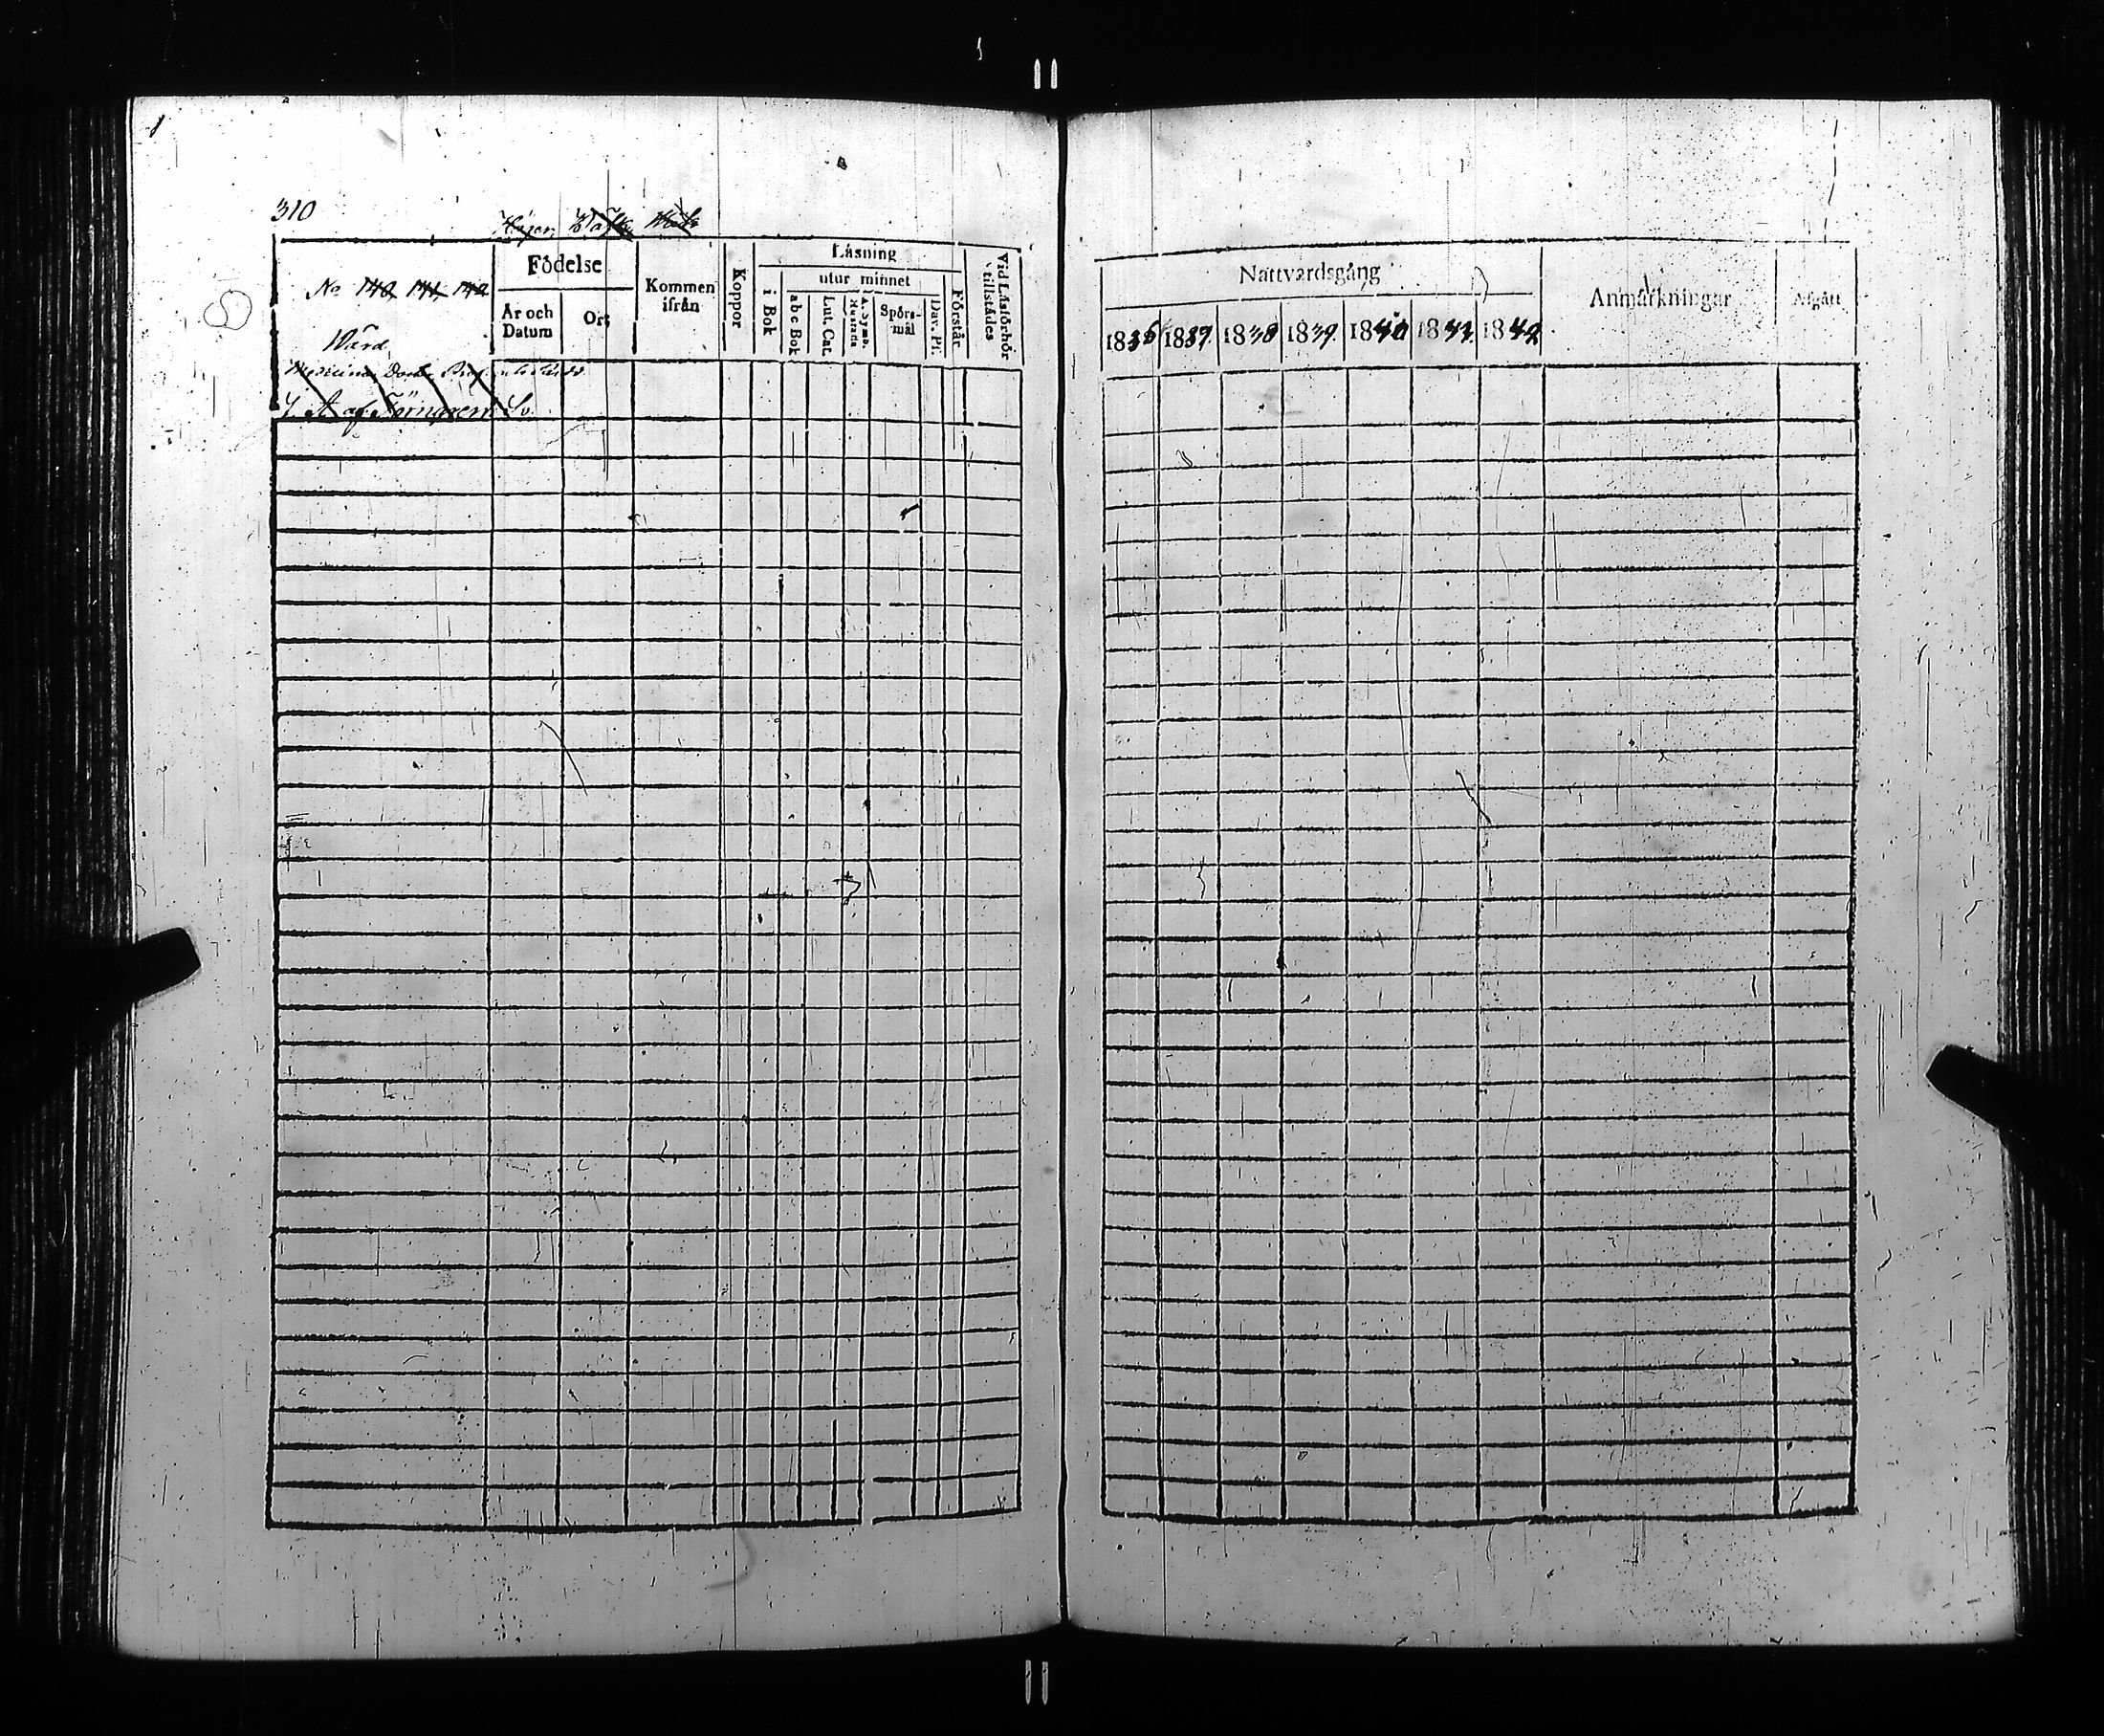 310
No 140 141 142
Wärd
J. A. af Törngren
Födelse
År och Datum
Ort
Kommen ifrån
Koppor
Läsning
i Bok
utur minnet
abc Bok
Lut. Cat.
Spörs-mål
Dav. Ps.
Förstår
Vid Läsförhör tillstädes
Nattvardsgång
1836 1837 1838 1839 1840 1841 1842
Anmärkningar
Afgått